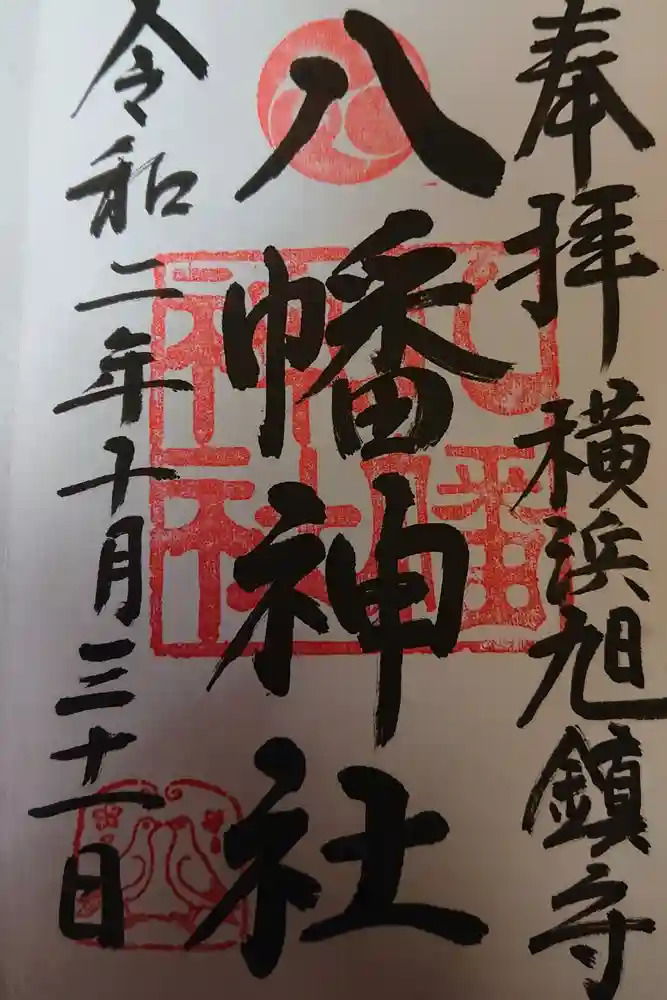 奉拝 横浜旭鎮守
八幡神社
八幡神社
令和二年十月三十一日